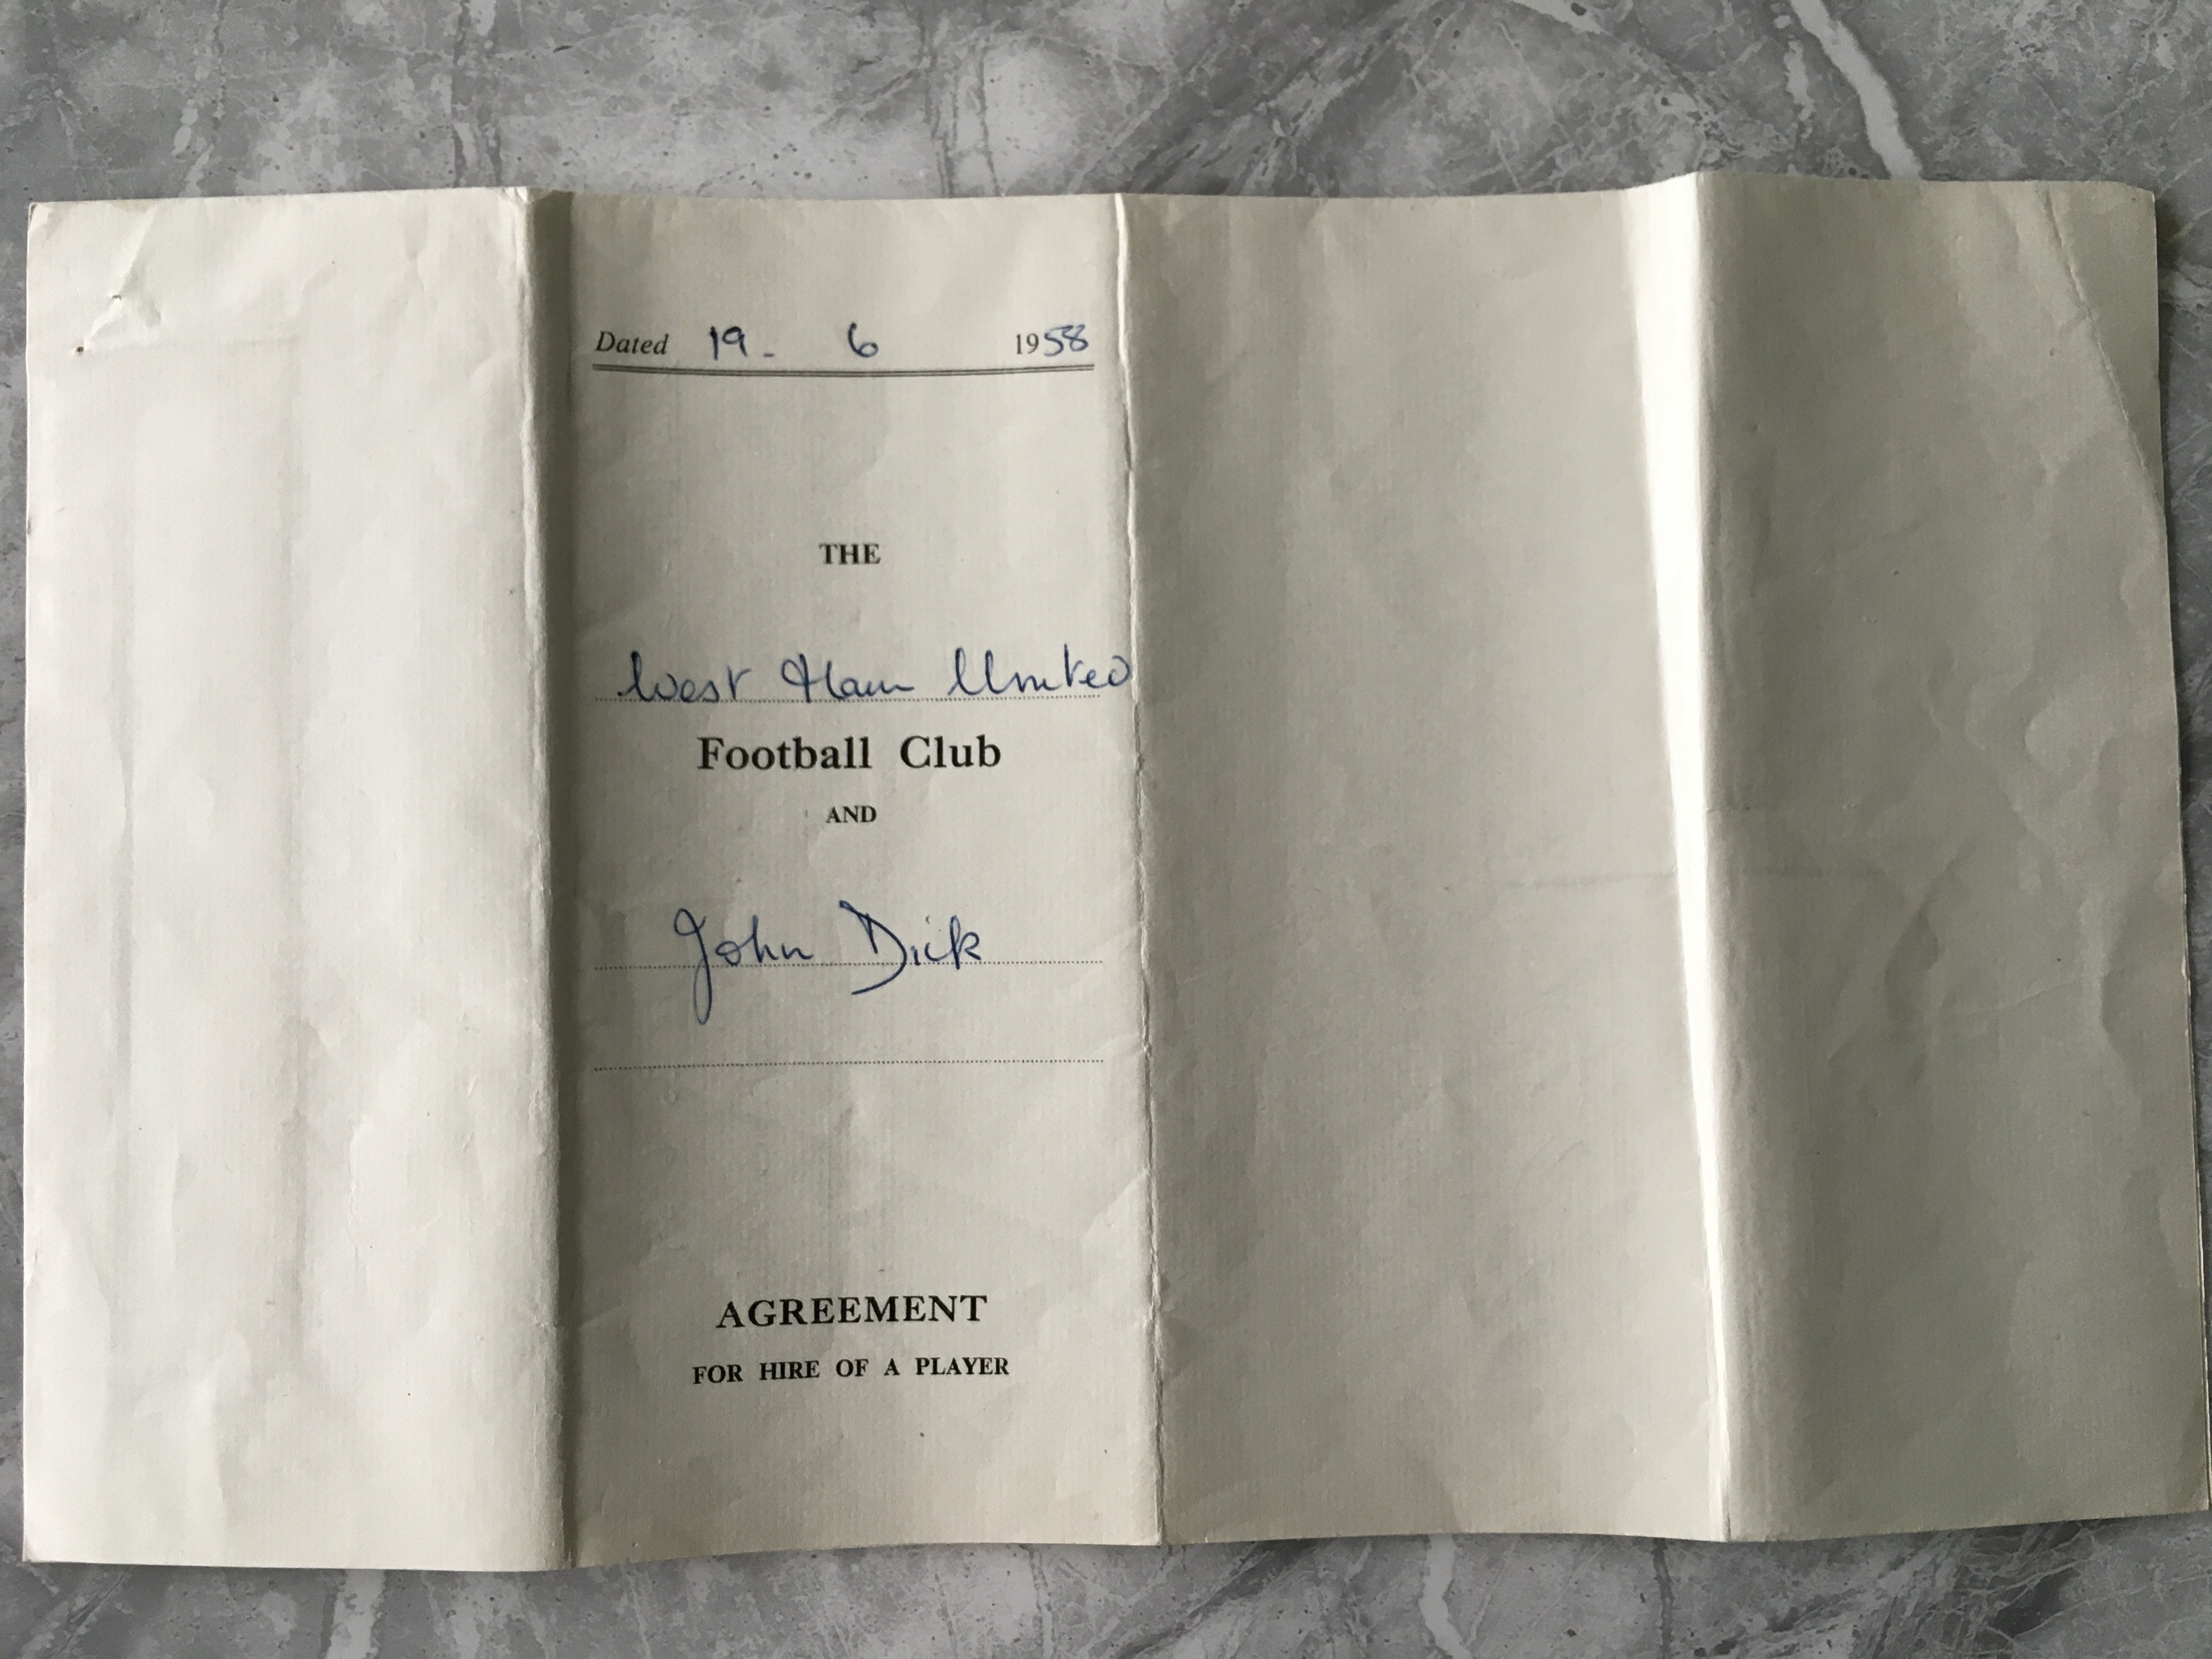 Dated 19 - 6 1958
THE
West Ham United
Football Club
AND
John Dick
AGREEMENT
FOR HIRE OF A PLAYER